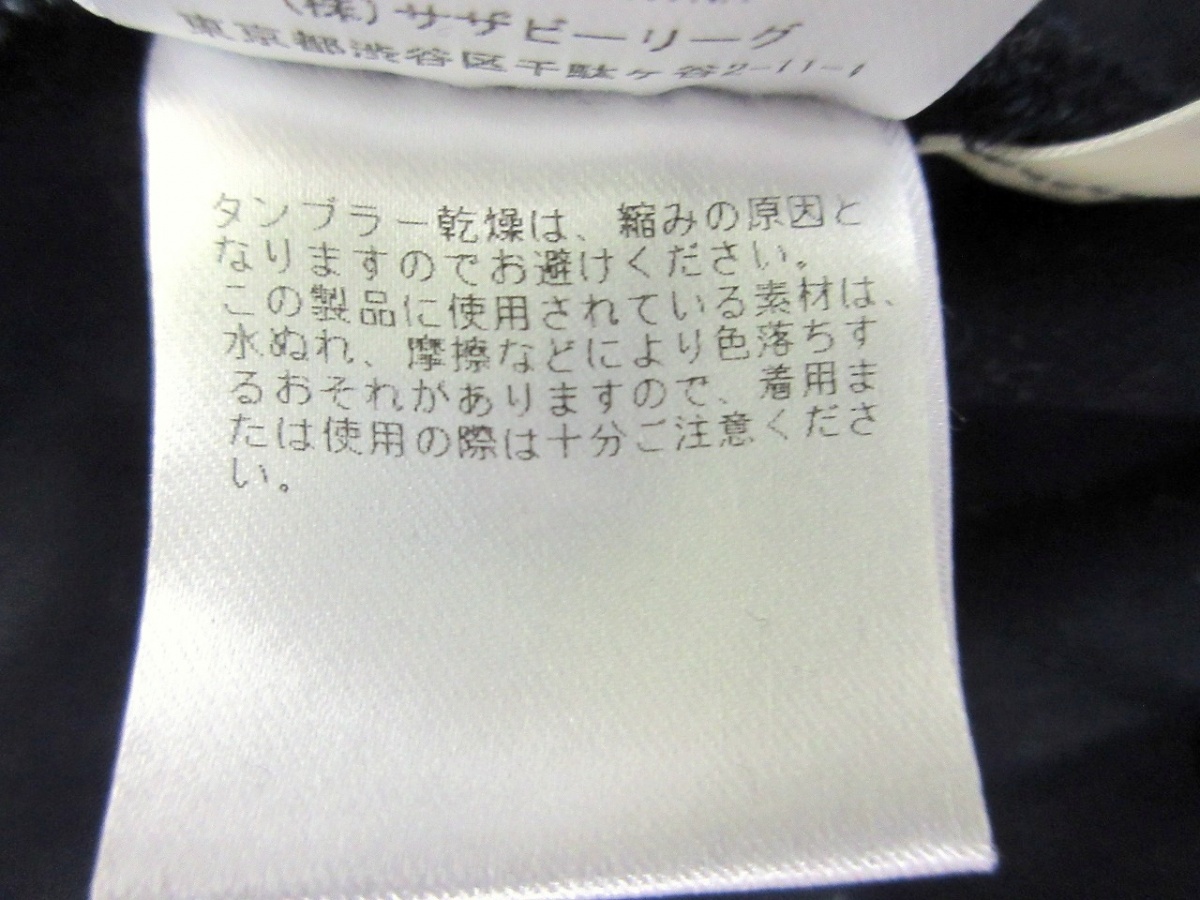 (株)サザビーリーグ
東京都渋谷区千駄ヶ谷2-11-1
タンブラー乾燥は、縮みの原因と
なりますのでお避けください。
この製品に使用されている素材は、
水ぬれ、摩擦などにより色落ちす
るおそれがありますので、着用ま
たは使用の際は十分ご注意くださ
い。